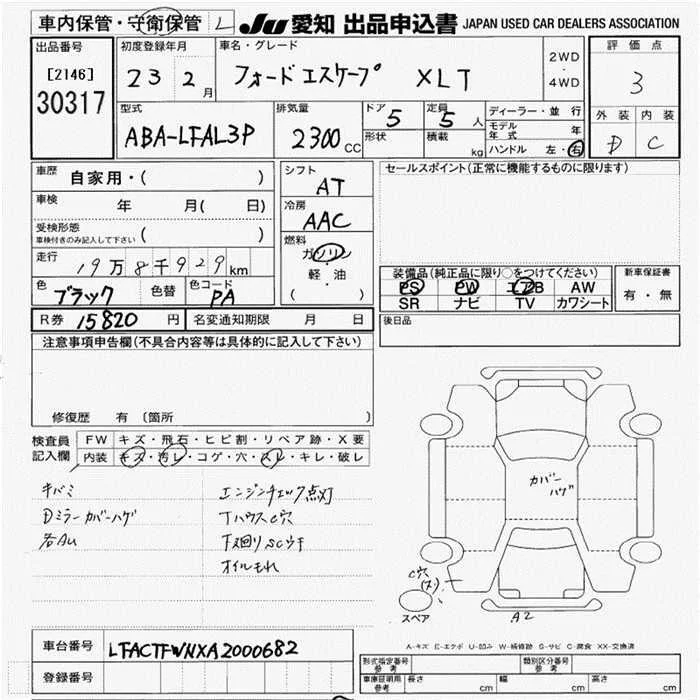 車内保管・守衛保管 L JU 愛知 出品申込書 JAPAN USED CAR DEALERS ASSOCIATION
出品番号 初度登録年月 車名・グレード 2WD・4WD 評価点
[2146] 30317 23 2月 フォードエスケープ XLT 3
型式 排気量 ドア 5 定員 5人 ディーラー・並行 外装 内装
ABA-LFAL3P 2300cc 形状 積載 kg モデル年式 年 D C
ハンドル 左・右
車歴 自家用・( ) シフト AT セールスポイント(正常に機能するものに限ります)
車検 年 月( 日) 冷房 AAC
受検形態 ( )
車検付きのみ記入して下さい
走行 19万8千929km 燃料 ガソリン・軽油 ( )
色 ブラック 色替 色コード PA
装備品(純正品に限り○をつけてください) 新車保証書
PS PW エアB AW 有・無
SR ナビ TV カワシート
R券 15820円 名変通知期限 月 日 後日品
注意事項申告欄(不具合内容等は具体的に記入して下さい)
修復歴 有 〔箇所
検査員記入欄 FW キズ・飛石・ヒビ割・リペア跡・X要
内装 キズ・汚レ・コゲ・穴・スレ・キレ・破レ
キバミ エンジンチェック点灯
Dミラーカバーハゲ TハウスC穴
各AU 下廻りSCサキ
オイルもれ
カバーハゲ
C穴
スペア
A2
A-キズ E-エクボ U-凹み W-補修跡 S-サビ C-腐食 XX-交換済
車台番号 LFACTFWNXA2000682
登録番号
形式指定番号 参考 類別区分番号 参考
車庫証明用 参考 長さ cm 幅 cm 高さ cm